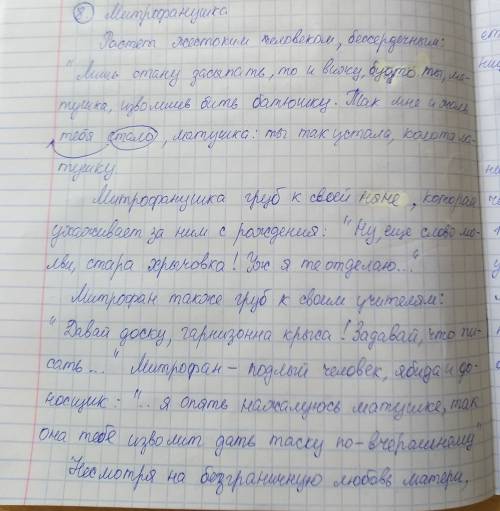 8. Митрофанушка
Растет жестоким человеком, бессердечным:
"Лишь стану засыпать, то и вижу, будто ты, ма-
тушка, изволишь бить батюшку. Так мне и жаль
тебя стало, матушка: ты так устала, колотя ба-
тюшку.
Митрофанушка груб к своей няне, которая
ухаживает за ним с рождения: "Ну, еще слово мо-
лви, стара хрычовка! Уж я те отделаю..."
Митрофан также груб к своим учителям:
"Давай доску, гарнизонна крыса! Задавай, что пи-
сать..." Митрофан – подлый человек, ябида и до-
носщик: ".. я опять нажалуюсь матушке, так
она тебе изволит дать таску по-вчерашнему"
Несмотря на безграничную любовь матери,